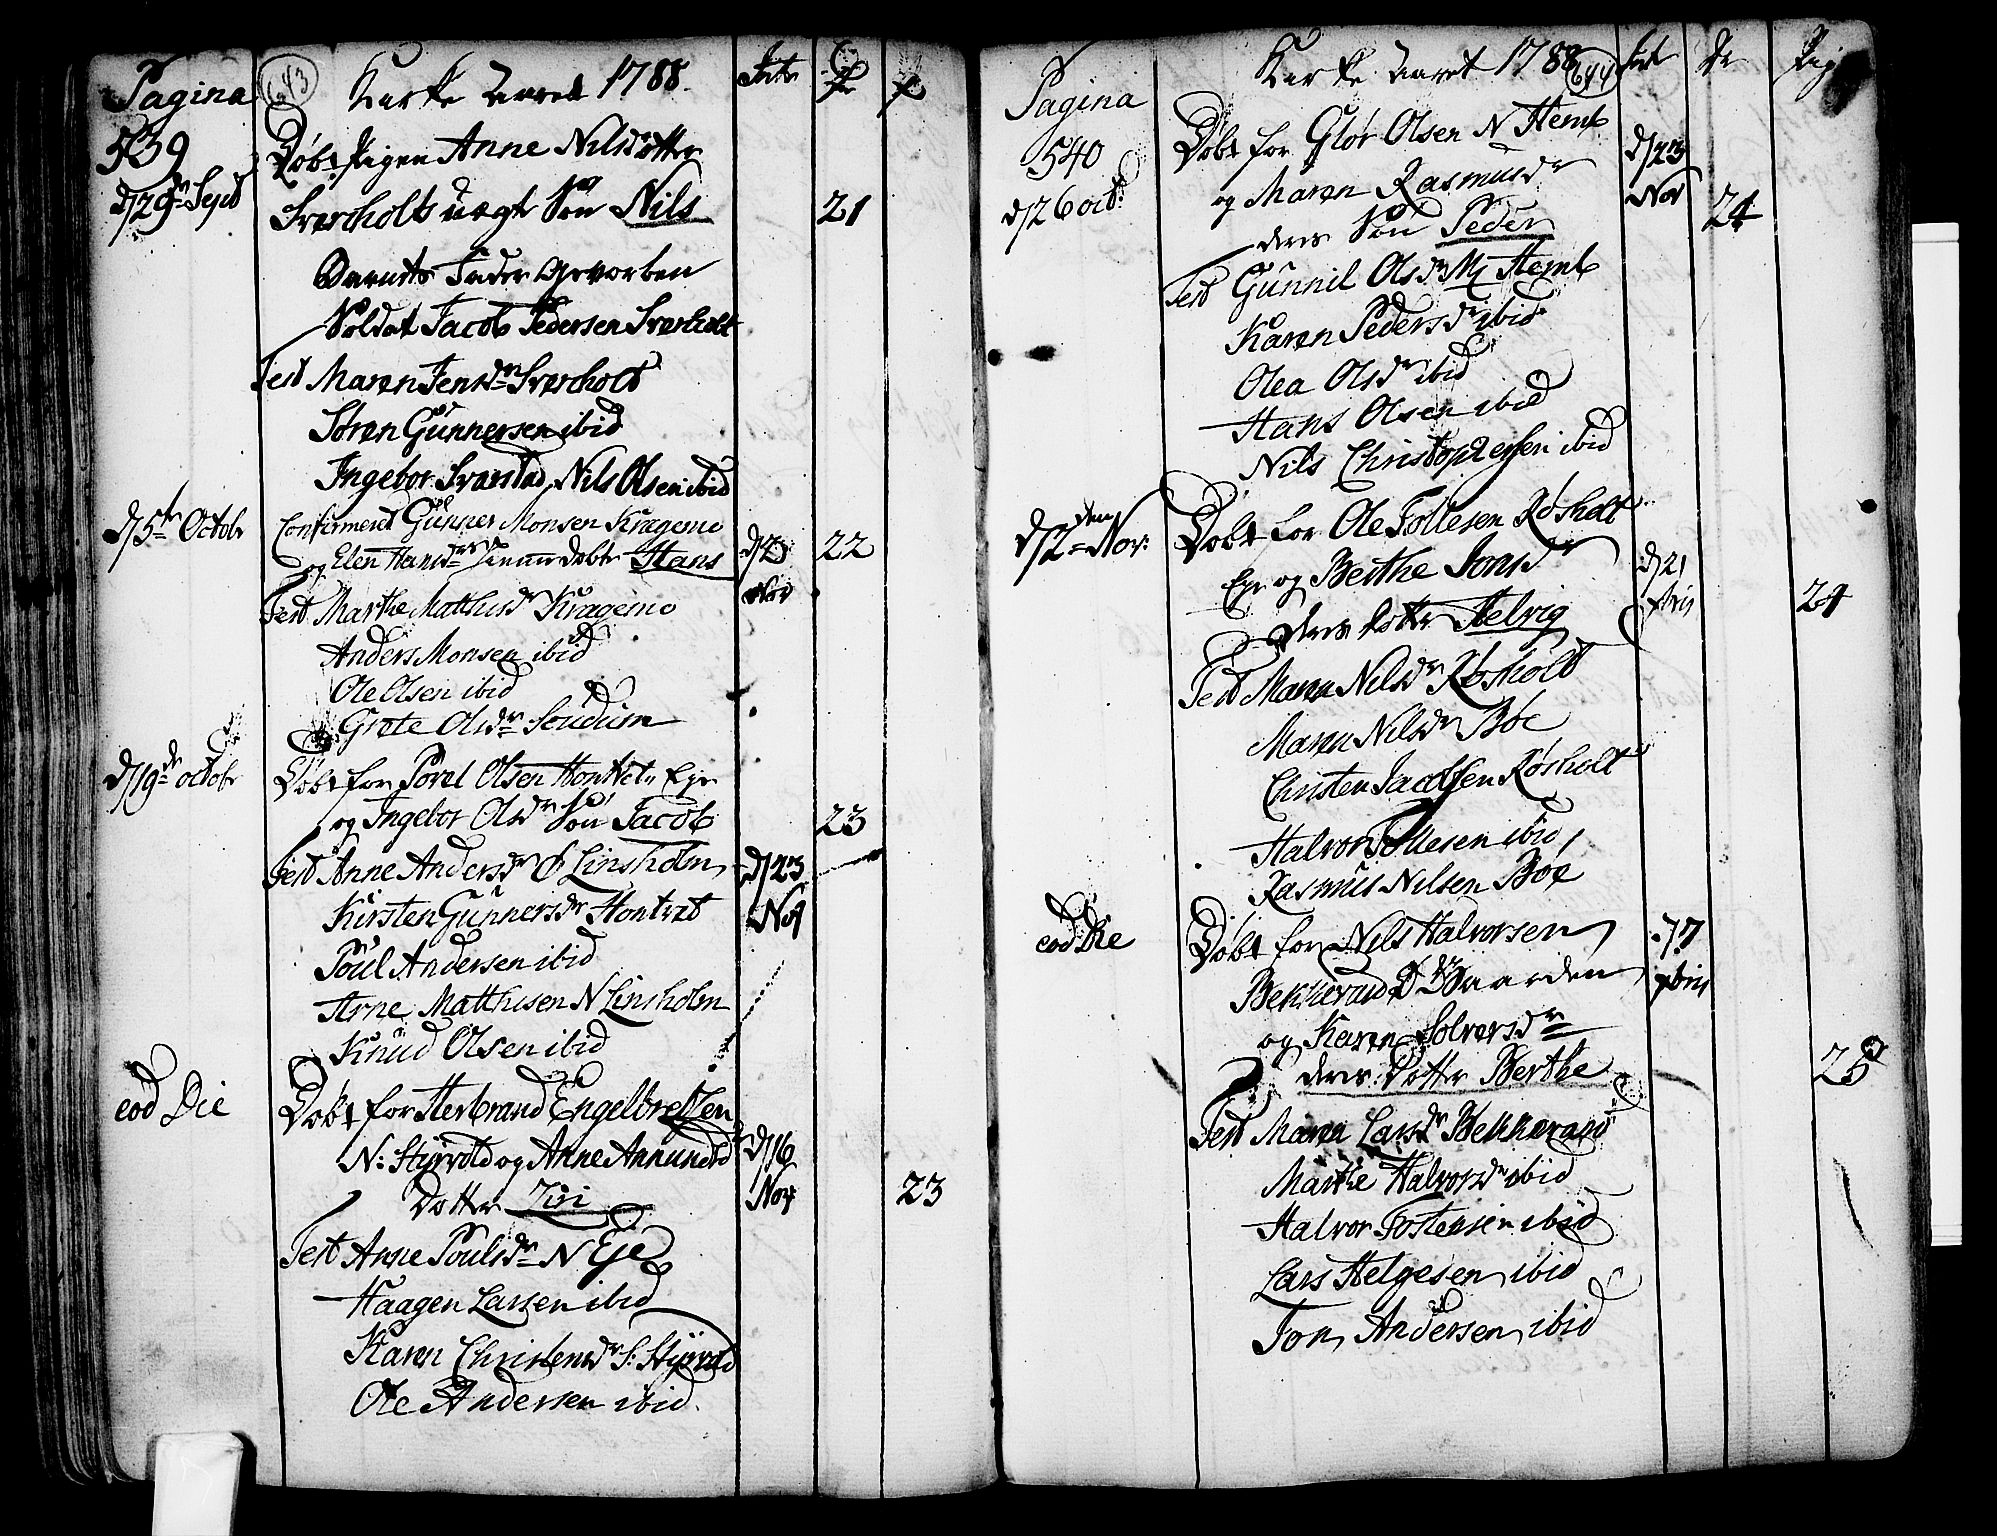 Pagina
539
643
Kirke Aaret 1788.
Intr
d/29de Sept
Døbt Pigen Anne Nilsdotter
Sværholts uægte Søn Nils
21
Barnets Fader Gevorben
Soldat Jacob Pedersen Sværholt
Test Maren Jensdr Sværholt
Søren Gunnersen ibid
Ingebor Svarstad, Nils Olsen ibid
d/5te Octobr
Confirmeret Gunner Monsen Kragemo
og Elen Hansdr døbt Hans
d/2
Nov
22
Test Marthe Matthisdr Kragemo
Anders Monsen ibid
Ole Olsen ibid
Grete Olsdr Soudum
d/19de octobr
Døbt for Povel Olsen Hontvet Eje
og Ingebor Olsdr Søn Jacob
23
Test Anne Andersdr S Linsholm
d/23
Nov
Kirsten Gunnersdr Hontvet
Poul Andersen ibid
Arne Matthisen N Linsholm
Knud Olsen ibid
eod Die
Døbt for Herbrand Engelbretsen
N: Styrvold og Anne Amundsd
d/16
Nov
Dotter Ziri
23
Test Anne Poulsdr N Eje
Haagen Larsen ibid
Karen Christensdr S: Styrvold
Ole Andersen ibid.
Pagina
540
Kirke Aaret 1788
644
Int
Dr
Pig
d/26 oct:
Døbt for Glør Olsen N Hemb
og Maren Rasmusdr
d/23
Nov
deres Søn Peder
24
Test Gunnil Olsdr M Hemb
Karen Pedersdr ibid
Olea Olsdr ibid
Hans Olsen ibid
Nils Christophersen ibid
d/2den Nov:
Døbt for Ole Tollesen Røsholt
Eje og Berthe Jonsdr
d/21
xbris
deres Dotter Helvig
24
Test Maren Nilsdr Røsholt
Maren Nilsdr Bøe
Christen Jacobsen Røsholt
Halvor Tollesen ibid,
Rasmus Nilsen Bøe
eod Die
Døbt for Nils Halvorsen
d/7
xbris
og Karen Solversdr
deres Dotter Berthe
25
Test Maren Larsdr Bekkerand
Marthe Halvorsdr ibid
Halvor Tostensen ibid
Lars Helgesen ibid
Jon Andersen ibid